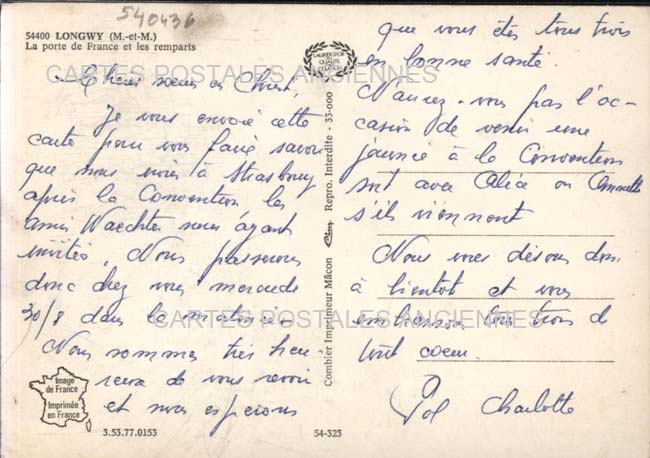 540436
54400 LONGWY (M.-et-M.)
La porte de France et les remparts
CARTES POSTALES ANCIENNES
Chères sœurs en Christ,
Je vous envoie cette
carte pour vous faire savoir
que nous irons à Strasbourg
après la Convention les
amis Waechter nous ayant
invités. Nous passerons
donc chez vous mercredi
30/8 dans la matinée.
Nous sommes très heu-
reux de vous revoir
et nous espérons
que vous êtes tous trois
en bonne santé.
N'aurez-vous pas l'oc-
casion de venir une
journée à la Convention
soit avec Alice ou Annette
s'ils viennent
Nous vous disons donc
à bientôt et vous
embrassons tous trois de
tout coeur.
Pol Charlotte
CARTES POSTALES ANCIENNES
Combier Imprimeur Mâcon
Repro. Interdite - 33-000
LAURIER D'OR
Image
de France
Imprimée
en France
3.53.77.0153
54-323